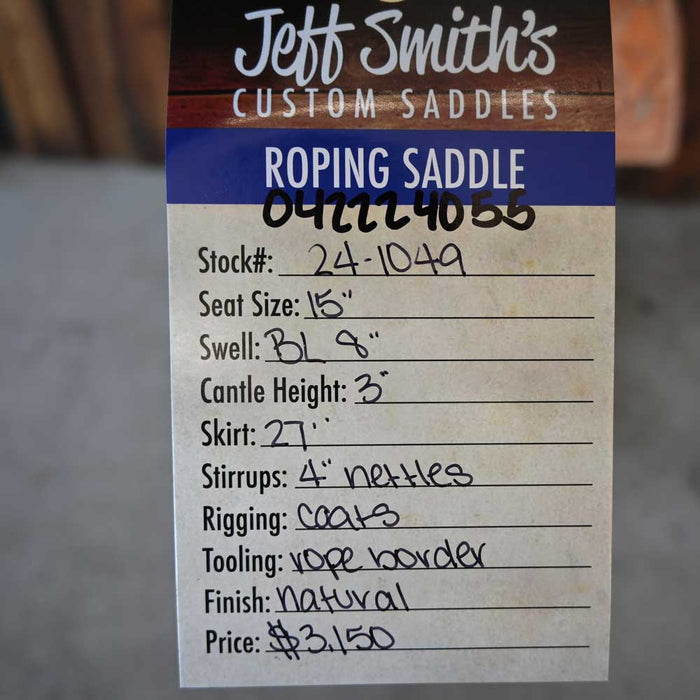 Jeff Smith's
CUSTOM SADDLES
ROPING SADDLE
042224055
Stock#: 24-1049
Seat Size: 15"
Swell: BL 8"
Cantle Height: 3"
Skirt: 27"
Stirrups: 4" nettles
Rigging: coats
Tooling: rope border
Finish: natural
Price: $3,150